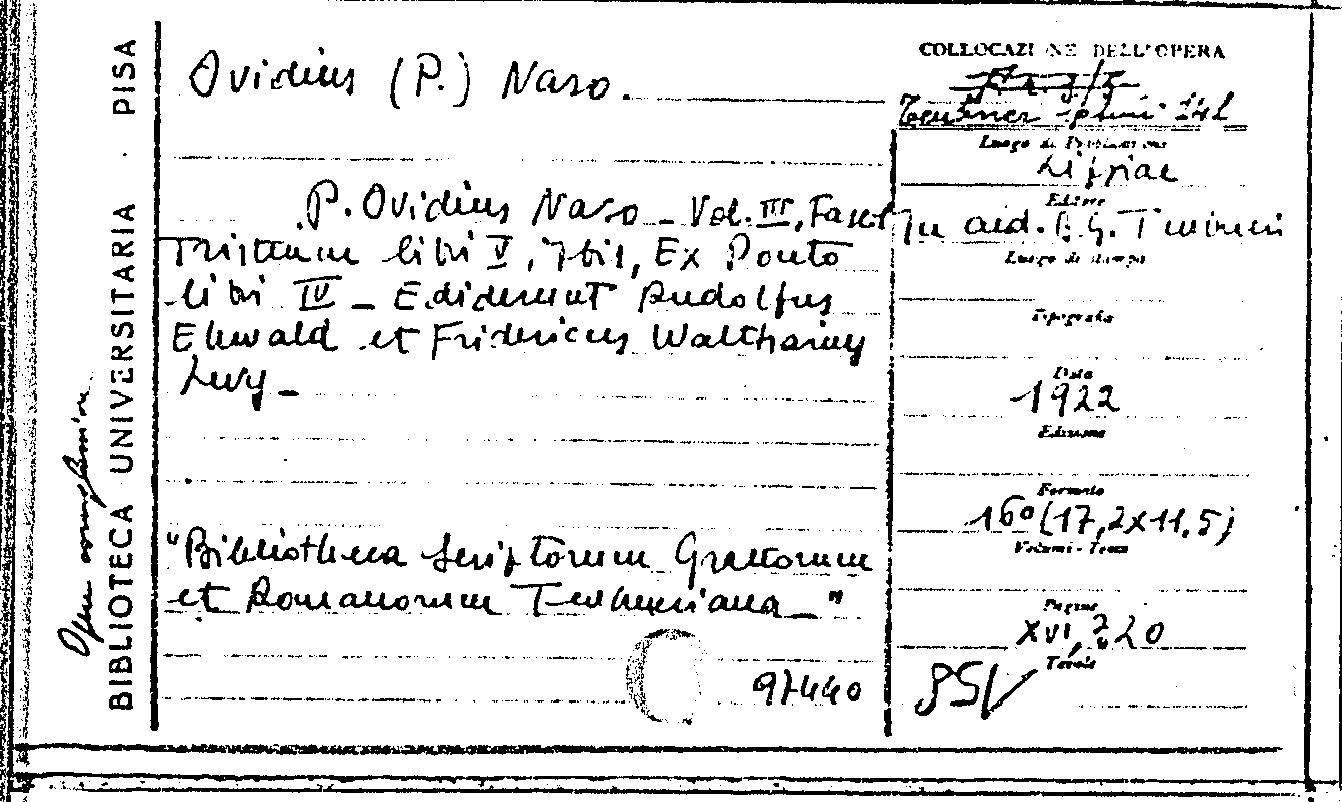 BIBLIOTECA UNIVERSITARIA . PISA
Ovidius (P.) Naso.
P. Ovidius Naso _ Vol. III, Fasc. I
Tristium libri V, Ibis, Ex Ponto
libri IV _ Ediderunt Rudolfus
Ehwald et Fridericus Waltharius
Levy _
"Bibliotheca Scriptorum Graecorum
et Romanorum Teubneriana _"
97440
COLLOCAZIONE DELL'OPERA
Teubner
Luogo di Pubblicazione
Lipsiae
Editore
In aed. B. G. Teubneri
Luogo di stampa
Tipografia
Data
1922
Edizione
Formato
16° (17,2x11,5)
Volumi - Tomi
Pagine
XVI, 220
Tavole